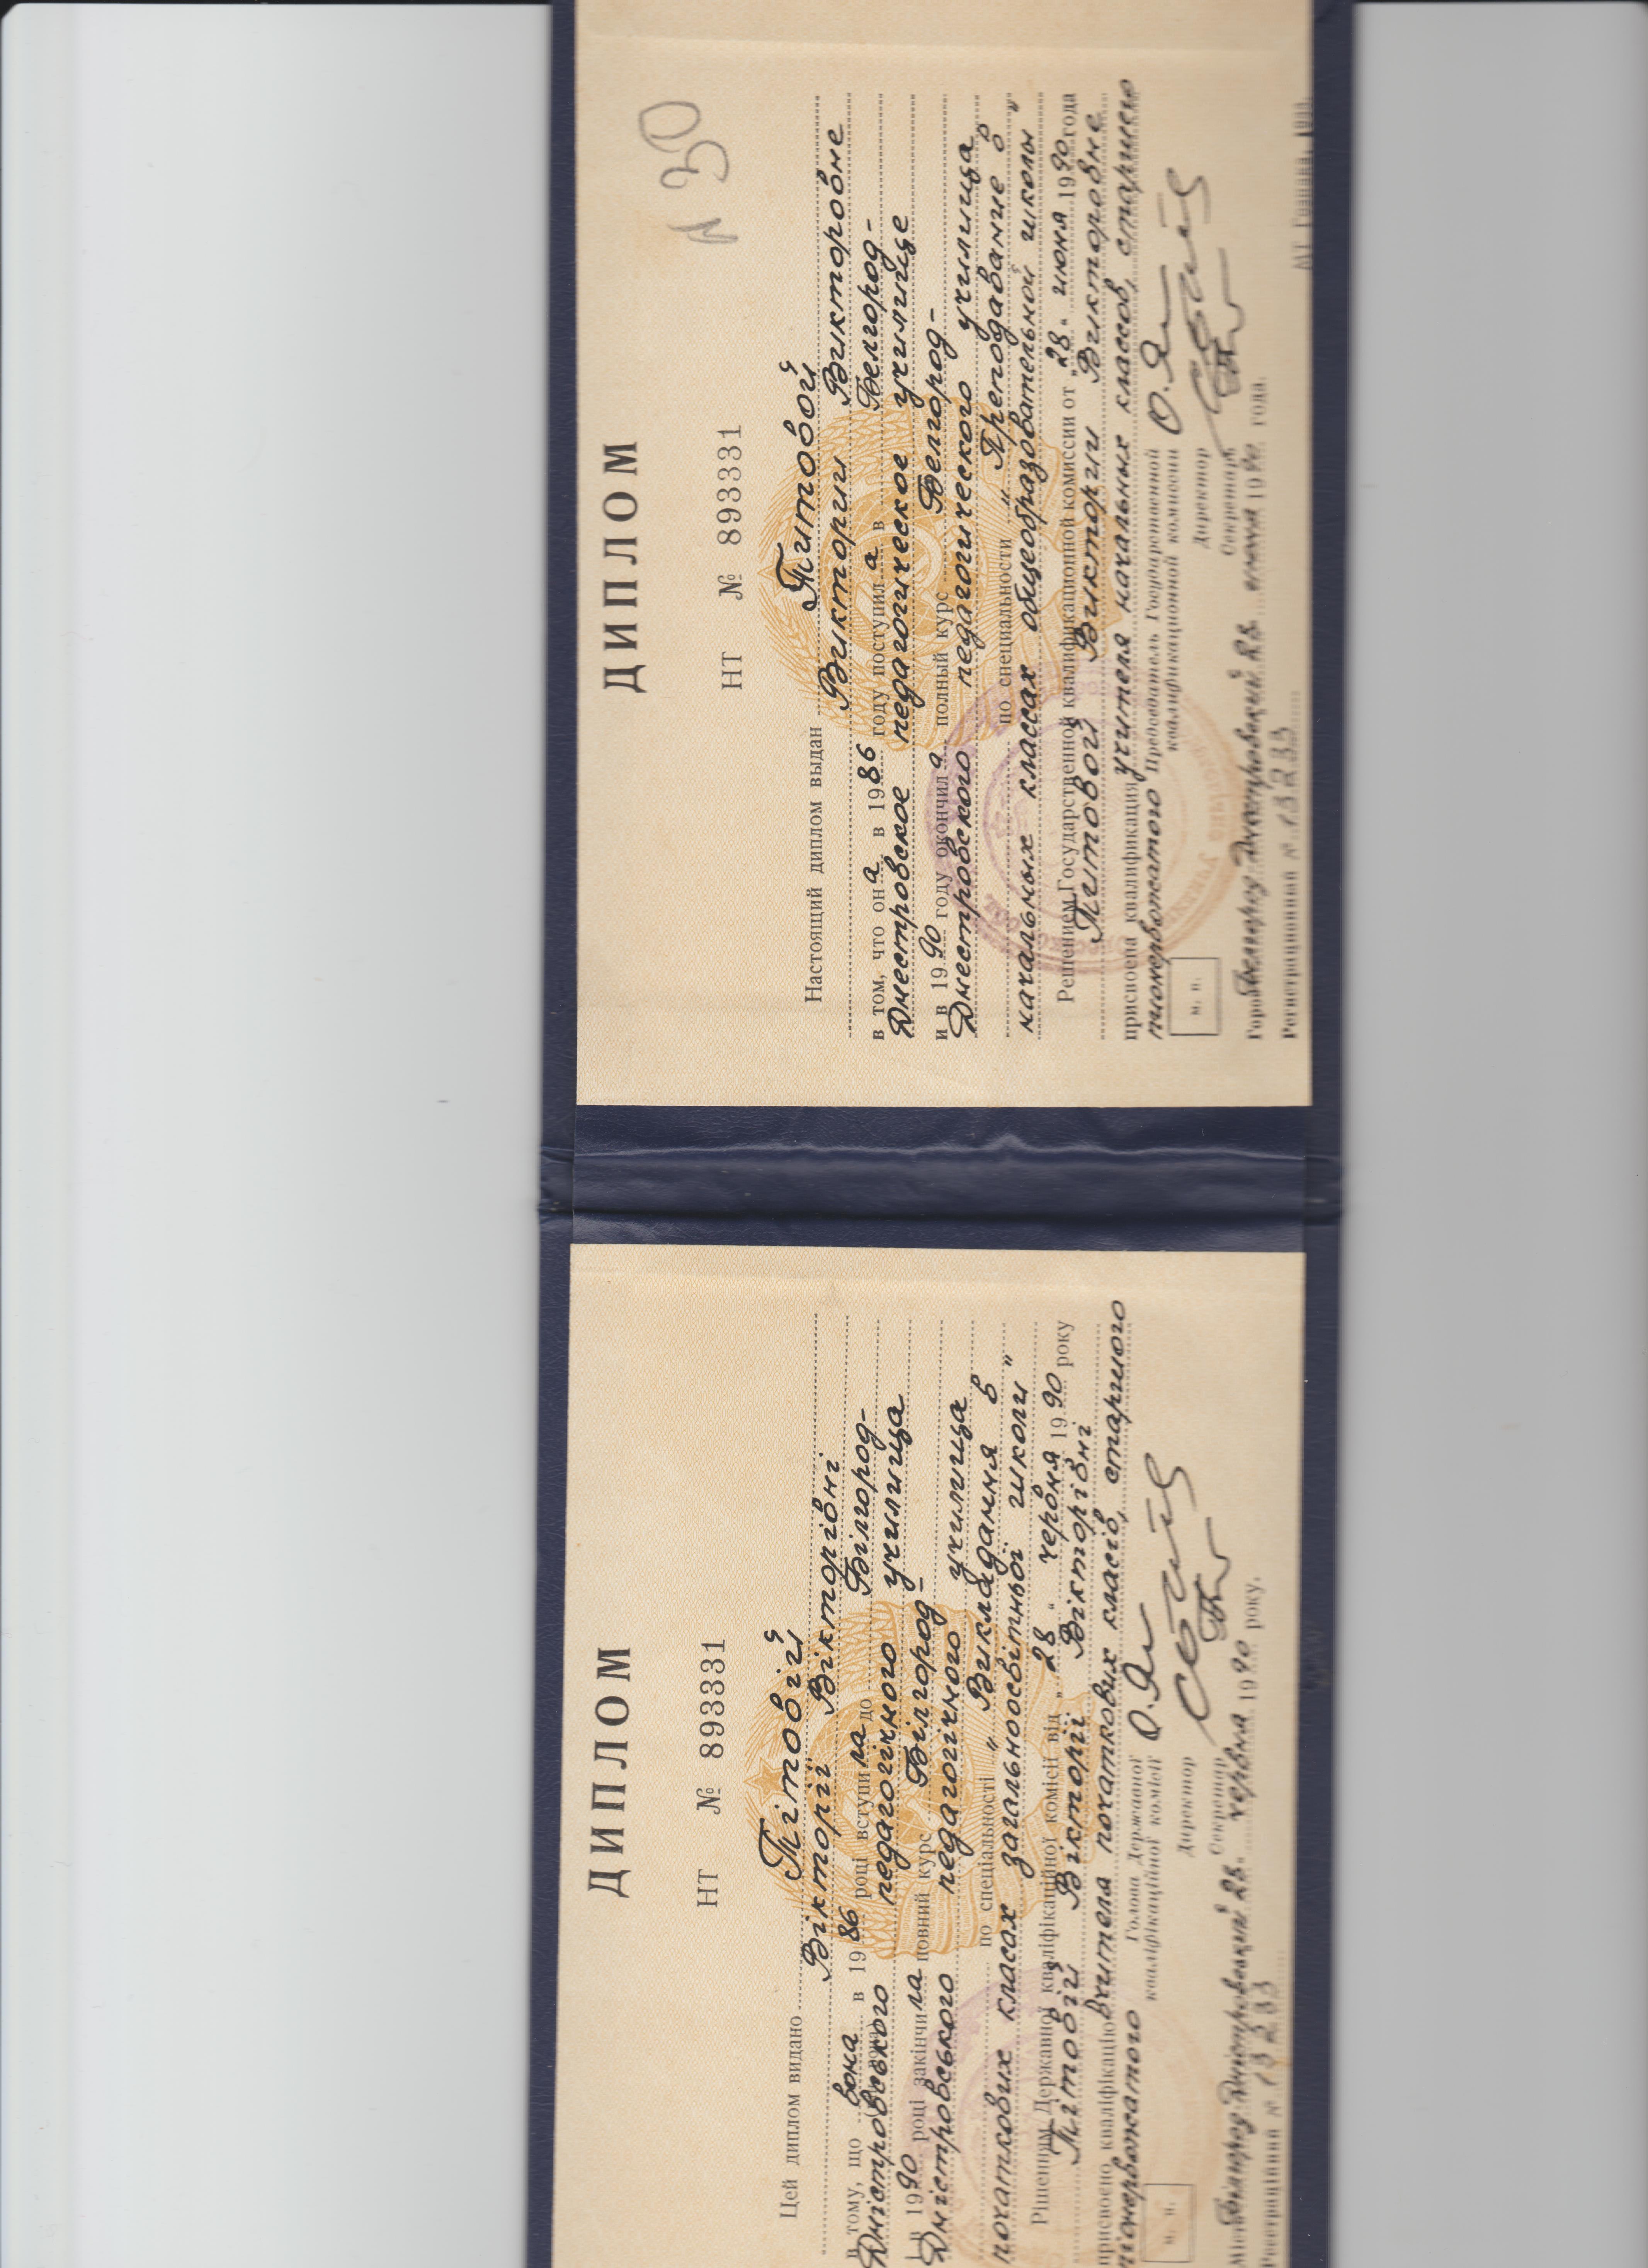 ДИПЛОМ
НТ № 893331
Цей диплом видано Тітовій
Вікторії Вікторівні
в тому, що вона в 1986 році вступила до Білгород-
Дністровського педагогічного училища
і в 1990 році закінчила повний курс Білгород-
Дністровського педагогічного училища
по спеціальності „Викладання в
початкових класах загальноосвітньої школи"
Рішенням Державної кваліфікаційної комісії від „28" червня 1990 року
Тітовій Вікторії Вікторівні
присвоєно кваліфікацію вчителя початкових класів, старшого
піонервожатого
Голова Державної
кваліфікаційної комісії
Директор
Секретар
м. п.
Місто Білгород-Дністровський 28 червня 1990 року.
Реєстраційний № 13233
ДИПЛОМ
N 30
НТ № 893331
Настоящий диплом выдан Титовой
Виктории Викторовне
в том, что она в 1986 году поступила в Белгород-
Днестровское педагогическое училище
и в 1990 году окончила полный курс Белгород-
Днестровского педагогического училища
по специальности „Преподавание в
начальных классах общеобразовательной школы"
Решением Государственной квалификационной комиссии от „28" июня 1990 года
Титовой Виктории Викторовне
присвоена квалификация учителя начальных классов, старшего
пионервожатого
Председатель Государственной
квалификационной комиссии
Директор
Секретарь
м. п.
Город Белгород-Днестровский 28 июня 1990 года.
Регистрационный № 13233
МТ Гознака.